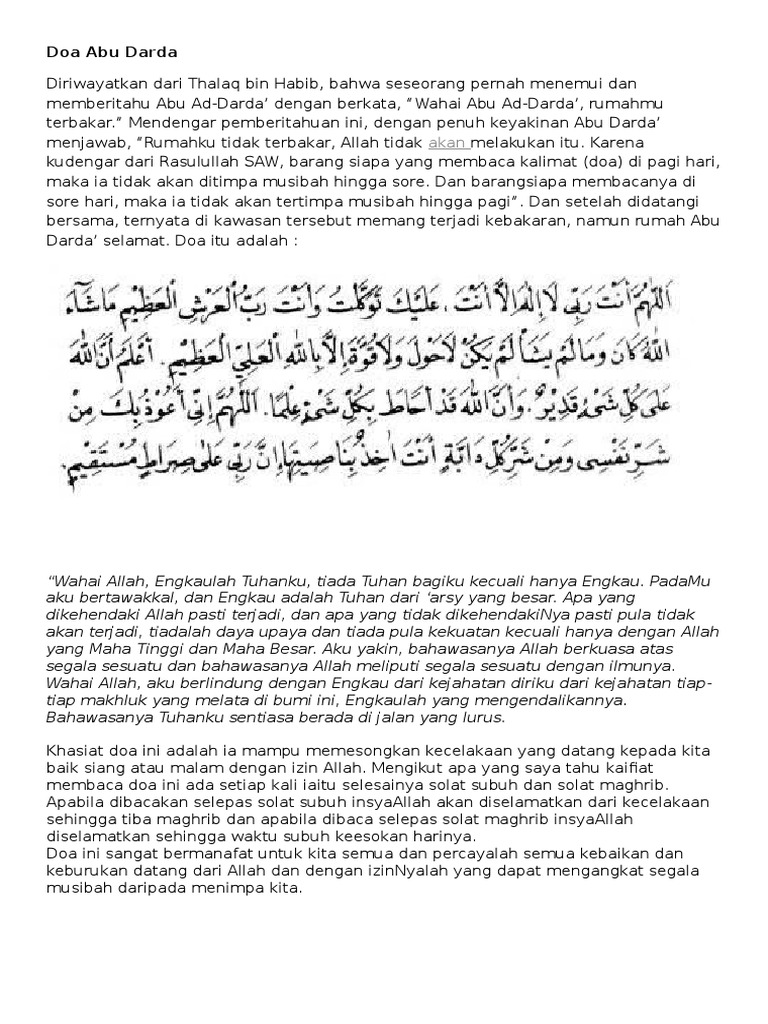 Doa Abu Darda
Diriwayatkan dari Thalaq bin Habib, bahwa seseorang pernah menemui dan
memberitahu Abu Ad-Darda’ dengan berkata, “Wahai Abu Ad-Darda’, rumahmu
terbakar.” Mendengar pemberitahuan ini, dengan penuh keyakinan Abu Darda’
menjawab, “Rumahku tidak terbakar, Allah tidak akan melakukan itu. Karena
kudengar dari Rasulullah SAW, barang siapa yang membaca kalimat (doa) di pagi hari,
maka ia tidak akan ditimpa musibah hingga sore. Dan barangsiapa membacanya di
sore hari, maka ia tidak akan tertimpa musibah hingga pagi”. Dan setelah didatangi
bersama, ternyata di kawasan tersebut memang terjadi kebakaran, namun rumah Abu
Darda’ selamat. Doa itu adalah :
اَللّٰهُمَّ أَنْتَ رَبِّى لَا إِلٰهَ إِلَّا أَنْتَ، عَلَيْكَ تَوَكَّلْتُ وَأَنْتَ رَبُّ الْعَرْشِ الْعَظِيْمِ مَاشَآءَ
اللّٰهُ كَانَ وَمَا لَمْ يَشَأْ لَمْ يَكُنْ لَاحَوْلَ وَلَا قُوَّةَ إِلَّا بِاللّٰهِ الْعَلِيِّ الْعَظِيْمِ. أَعْلَمُ أَنَّ اللّٰهَ
عَلَى كُلِّ شَيْءٍ قَدِيْرٌ. وَأَنَّ اللّٰهَ قَدْ أَحَاطَ بِكُلِّ شَيْءٍ عِلْمًا. اَللّٰهُمَّ إِنِّى أَعُوْذُ بِكَ مِنْ
شَرِّ نَفْسِى وَمِنْ شَرِّ كُلِّ دَابَّةٍ أَنْتَ اٰخِذٌ بِنَاصِيَتِهَا إِنَّ رَبِّى عَلَى صِرَاطٍ مُسْتَقِيْمٍ.
“Wahai Allah, Engkaulah Tuhanku, tiada Tuhan bagiku kecuali hanya Engkau. PadaMu
aku bertawakkal, dan Engkau adalah Tuhan dari ‘arsy yang besar. Apa yang
dikehendaki Allah pasti terjadi, dan apa yang tidak dikehendakiNya pasti pula tidak
akan terjadi, tiadalah daya upaya dan tiada pula kekuatan kecuali hanya dengan Allah
yang Maha Tinggi dan Maha Besar. Aku yakin, bahawasanya Allah berkuasa atas
segala sesuatu dan bahawasanya Allah meliputi segala sesuatu dengan ilmunya.
Wahai Allah, aku berlindung dengan Engkau dari kejahatan diriku dari kejahatan tiap-
tiap makhluk yang melata di bumi ini, Engkaulah yang mengendalikannya.
Bahawasanya Tuhanku sentiasa berada di jalan yang lurus.
Khasiat doa ini adalah ia mampu memesongkan kecelakaan yang datang kepada kita
baik siang atau malam dengan izin Allah. Mengikut apa yang saya tahu kaifiat
membaca doa ini ada setiap kali iaitu selesainya solat subuh dan solat maghrib.
Apabila dibacakan selepas solat subuh insyaAllah akan diselamatkan dari kecelakaan
sehingga tiba maghrib dan apabila dibaca selepas solat maghrib insyaAllah
diselamatkan sehingga waktu subuh keesokan harinya.
Doa ini sangat bermanafat untuk kita semua dan percayalah semua kebaikan dan
keburukan datang dari Allah dan dengan izinNyalah yang dapat mengangkat segala
musibah daripada menimpa kita.